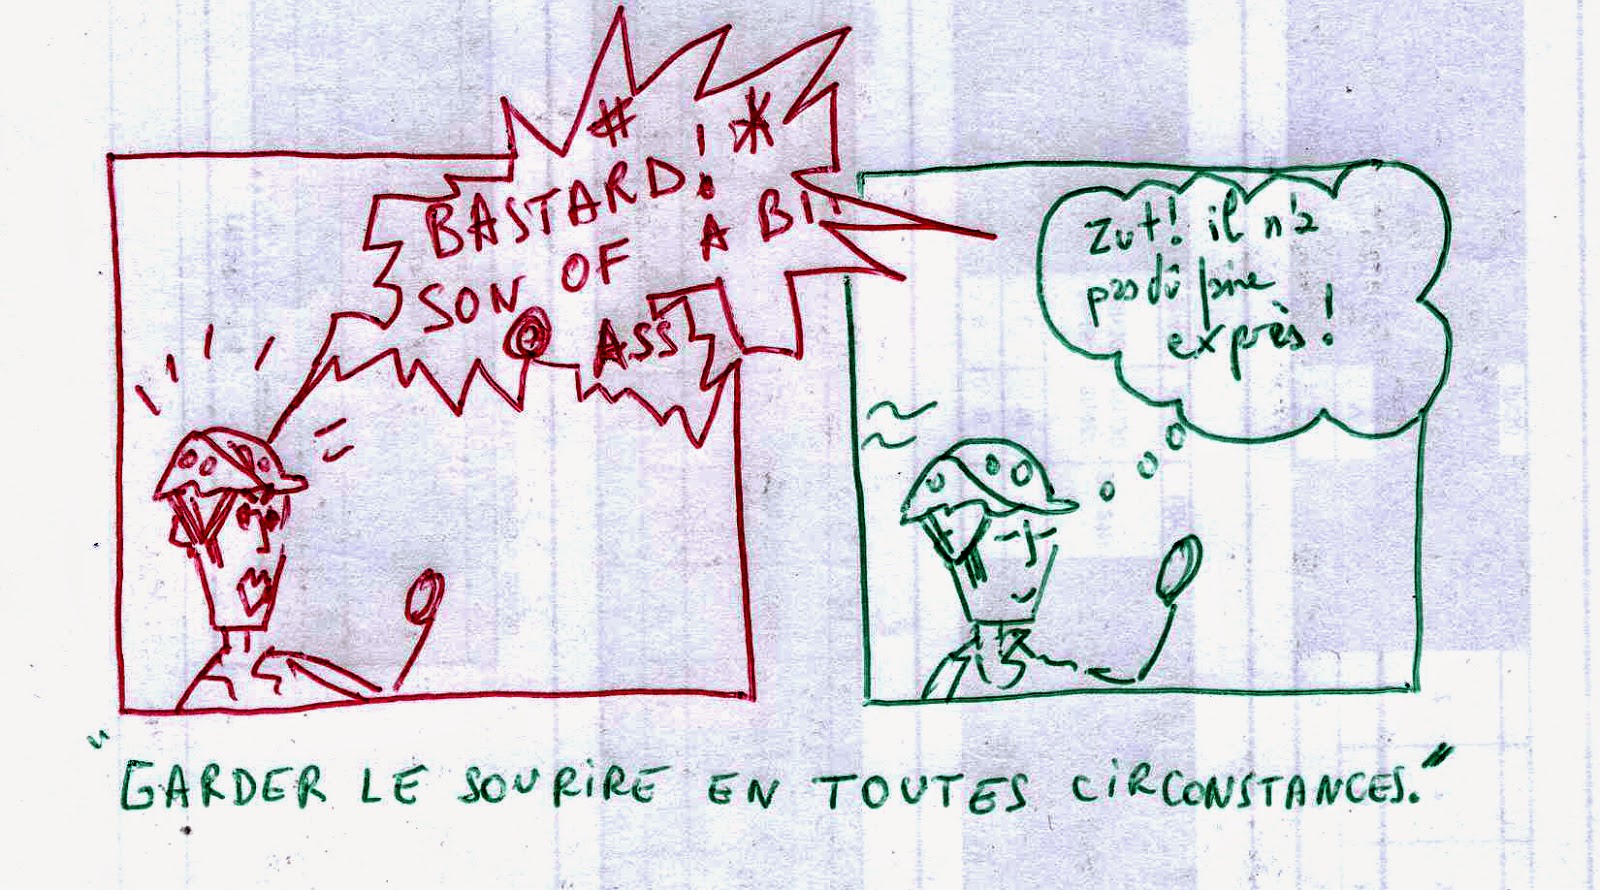 # *
BASTARD!
SON OF A BI
@ ASS
Zut! il n'a
pas dû faire
exprès!
"GARDER LE SOURIRE EN TOUTES CIRCONSTANCES."